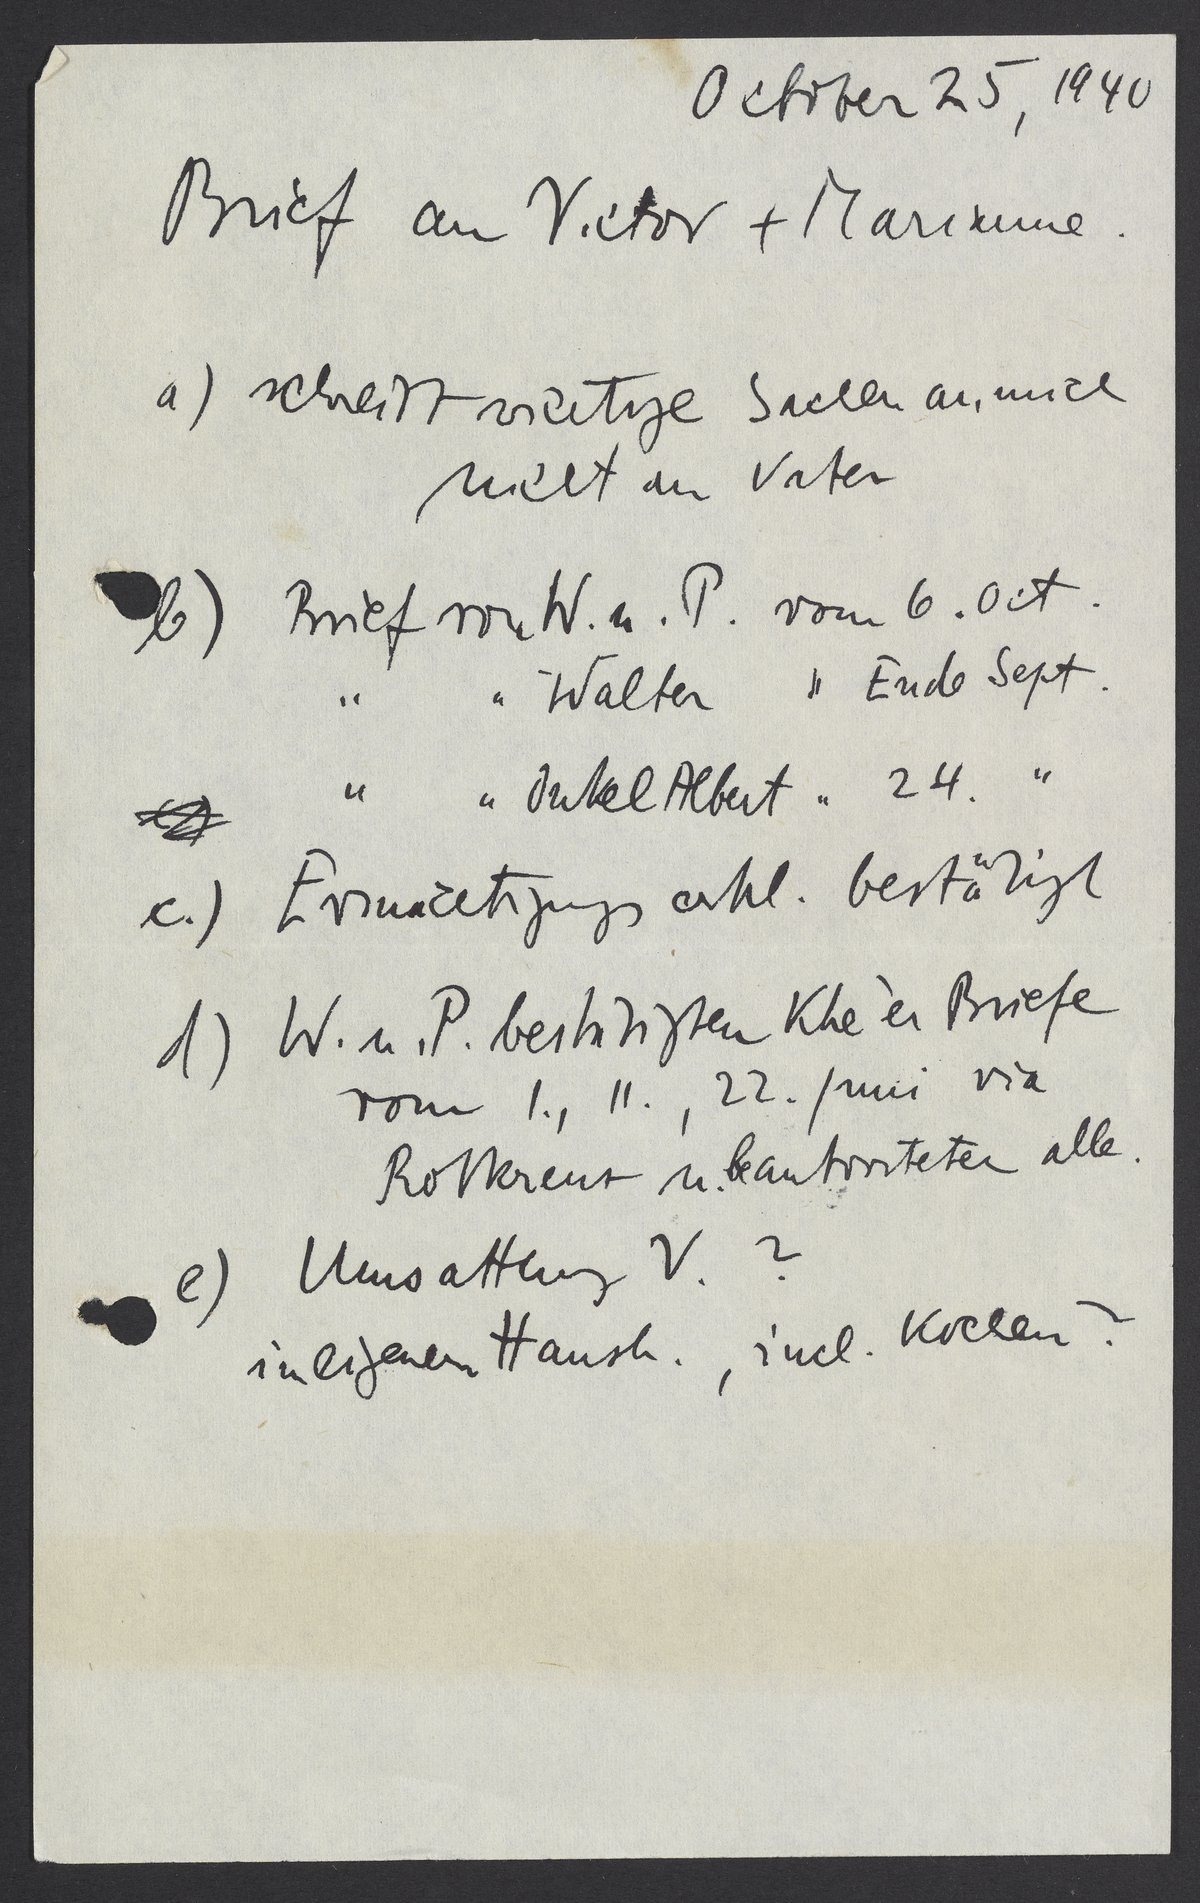 October 25, 1940
Brief an Victor + Marianne.
a) schreibt wichtige Sachen an mich
nicht an Vater
b) Brief von W. u. P. vom 6. Oct.
" " Walter " Ende Sept.
" " Onkel Albert " 24. "
c.) Ermächtigungs erkl. bestätigt
d) W. u. P. bestätigten Khe'er Briefe
vom 1., 11., 22. Juni via
Rotkreuz u. beantworteten alle.
e) Umsattlung V. ?
in eigenem Haush., incl. Kochen?